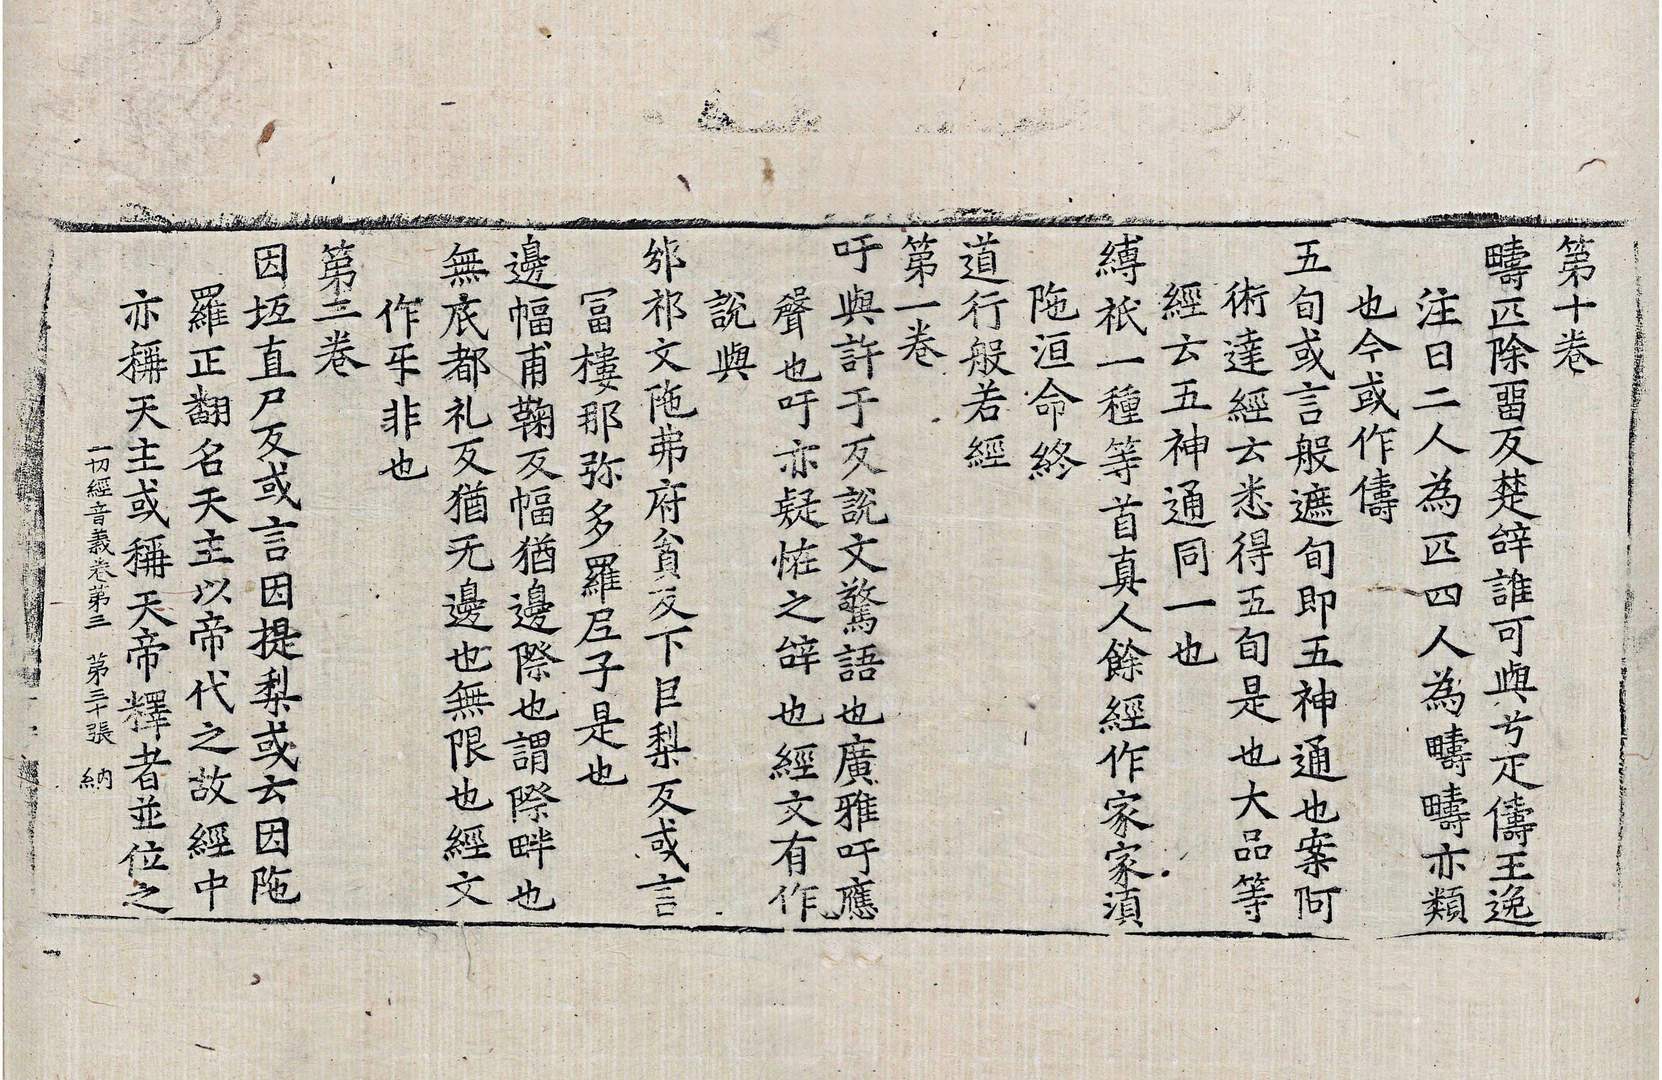 第十卷
疇匹除畱反楚辝誰可與兮疋儔王逸
注曰二人為匹四人為疇疇亦類
也今或作儔
五旬或言般遮旬即五神通也案阿
術達經云悉得五旬是也大品等
經云五神通同一也
縛祇一種等首真人餘經作家家湏
陁洹命終
道行般若經
第一卷
吁與許于反說文驚語也廣雅吁應
聲也吁亦疑恠之辝也經文有作
說與
邠祁文陁弗府貧反下巨梨反或言
冨樓那弥多羅尼子是也
邊幅甫鞠反幅猶邊際也謂際畔也
無底都礼反猶无邊也無限也經文
作乎非也
第二卷
因坻直尸反或言因提梨或云因陁
羅正翻名天主以帝代之故經中
亦稱天主或稱天帝釋者並位之
一切經音義卷第三 第三十張 納